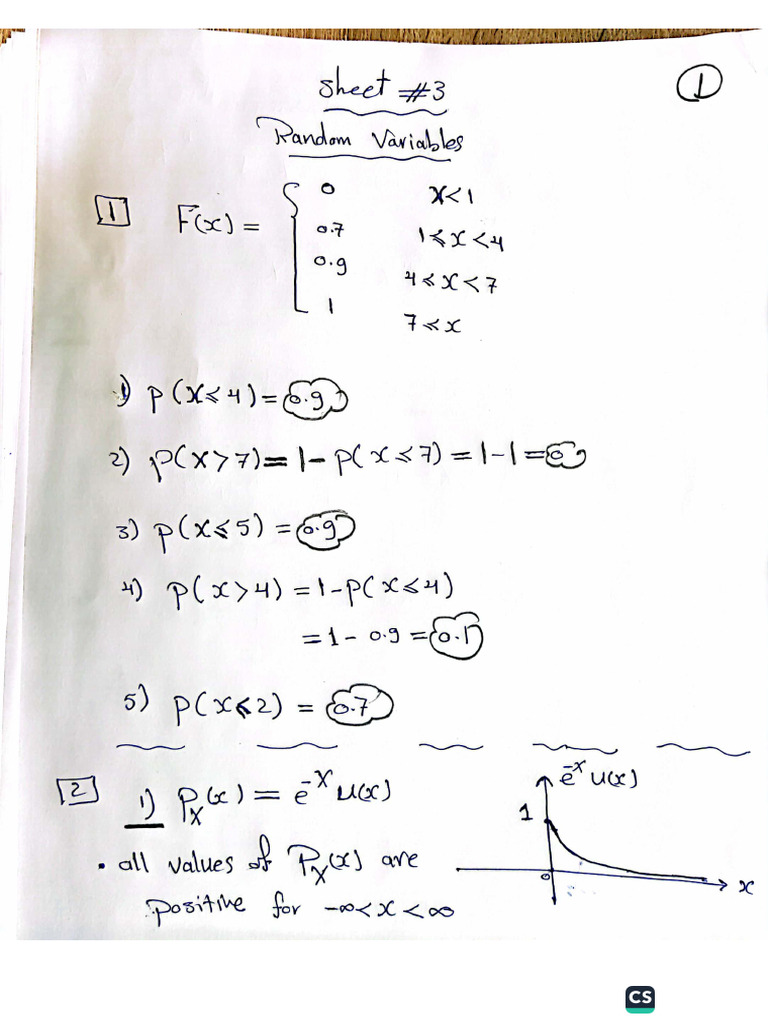 Sheet #3
1
Random Variables
1 F(x) = { 0 x<1
0.7 1⩽x<4
0.9 4⩽x<7
1 7⩽x
1) p(x⩽4) = 0.9
2) p(x>7) = 1-p(x⩽7) = 1-1 = 0
3) p(x⩽5) = 0.9
4) p(x>4) = 1-p(x⩽4)
= 1 - 0.9 = 0.1
5) p(x⩽2) = 0.7
2 1) P_X(x) = e^-x u(x)
e^-x u(x)
1
• all values of P_X(x) are
0 x
positive for -∞<x<∞
CS